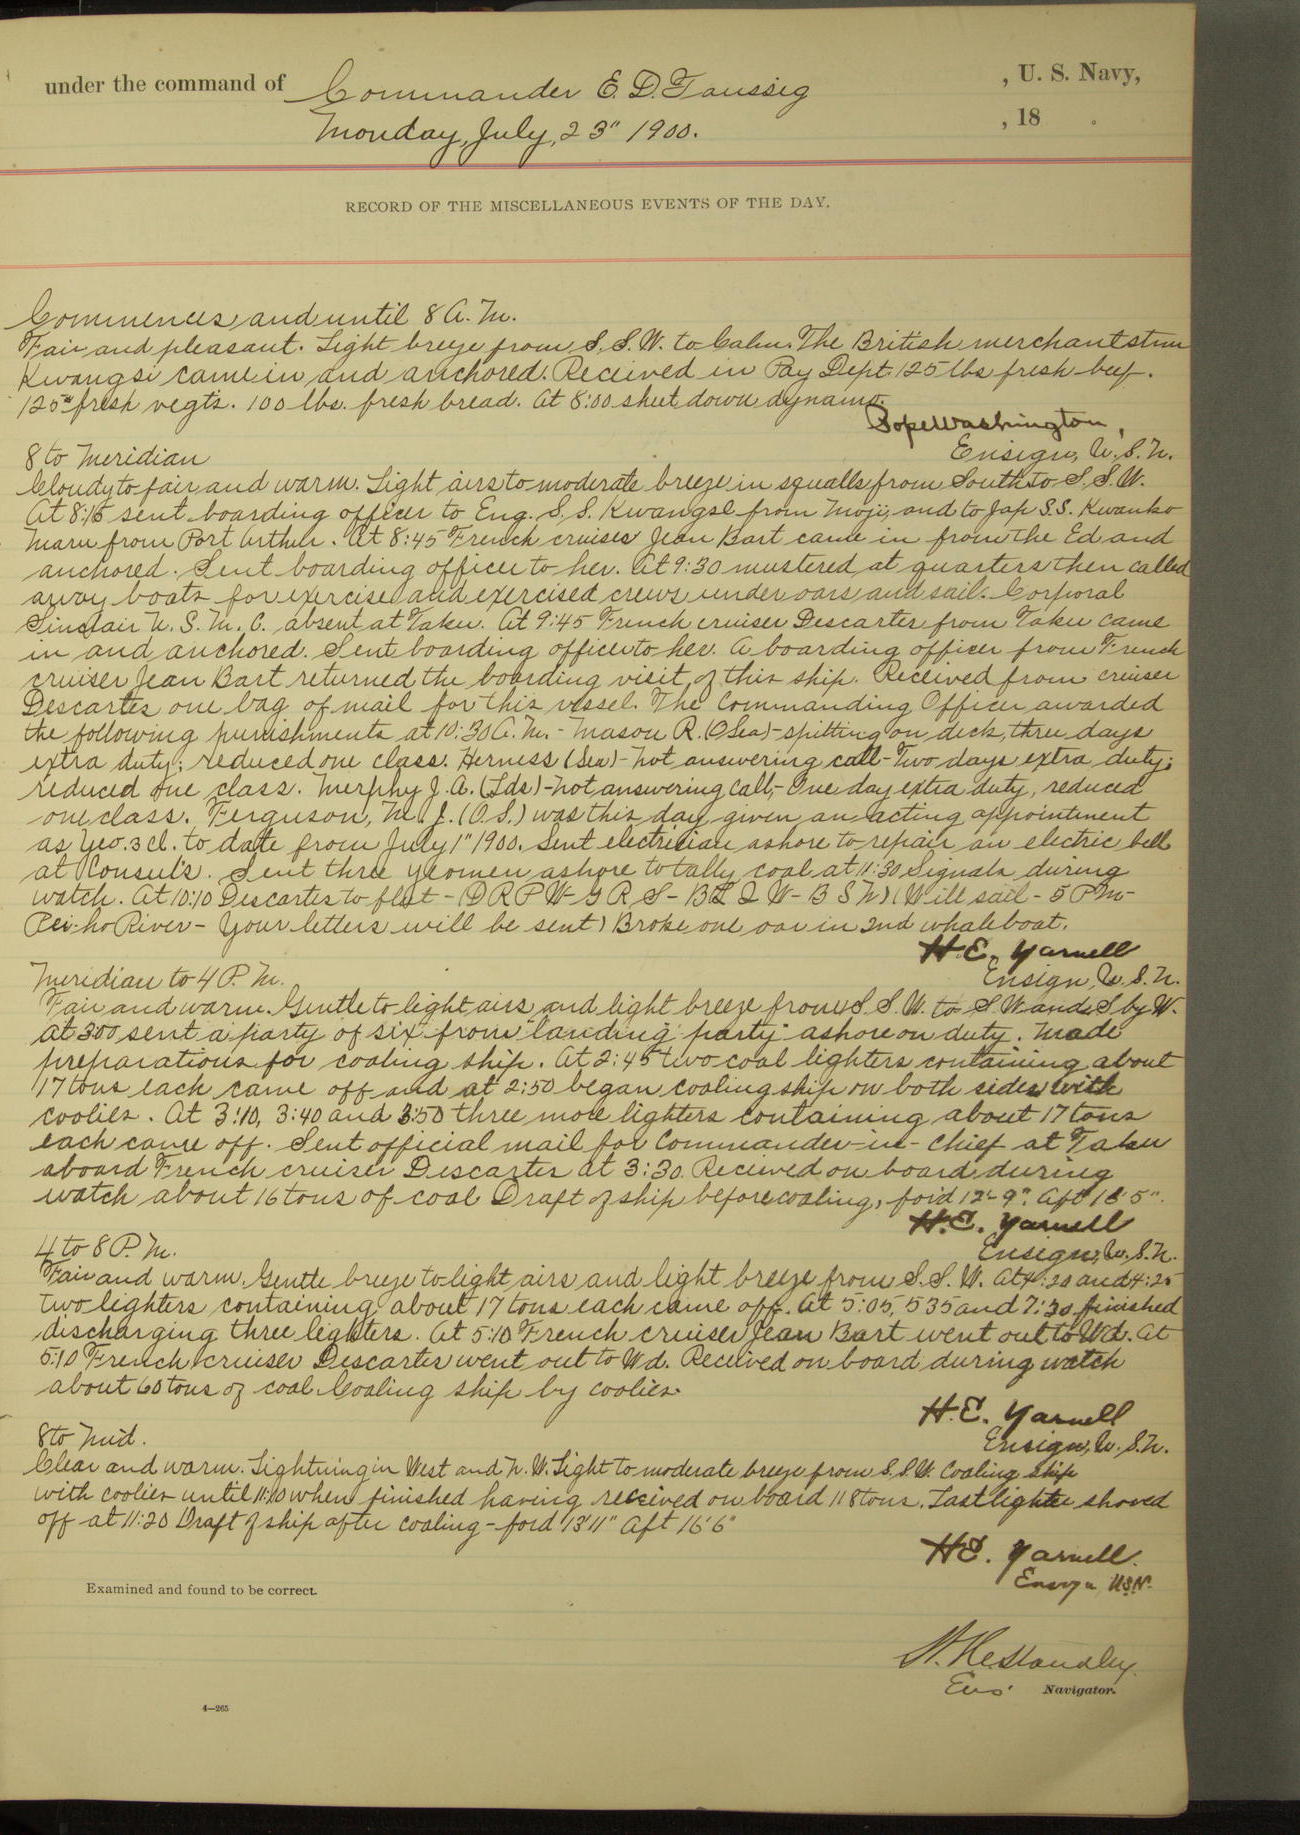 under the command of Commander E. D. Taussig , U. S. Navy,
Monday, July, 23" 1900. , 18 .
RECORD OF THE MISCELLANEOUS EVENTS OF THE DAY.
Commences and until 8 A. M.
Fair and pleasant. Light breeze from S. S. W. to Calm. The British merchant stmr
Kwangse came in and anchored. Received in Pay Dept. 125 lbs fresh beef.
125 " fresh vegts. 100 lbs. fresh bread. At 8:00 shut down dynamo.
Pope Washington,
Ensign, U. S. N.
8 to Meridian
Cloudy to fair and warm. Light airs to moderate breeze in squalls from South to S. S. W.
At 8:15 sent boarding officer to Eng. S. S. Kwangse from Moji, and to Jap S.S. Kwanko
Maru from Port Arthur. At 8:45 French cruiser Jean Bart came in from the Ed and
anchored. Sent boarding officer to her. At 9:30 mustered at quarters then called
away boats for exercise and exercised crews under oars and sail. Corporal
Sinclair U. S. M. C. absent at Taku. At 9:45 French cruiser Descartes from Taku came
in and anchored. Sent boarding officer to her. A boarding officer from French
cruiser Jean Bart returned the boarding visit of this ship. Received from cruiser
Descartes one bag of mail for this vessel. The Commanding Officer awarded
the following punishments at 10:30 A. M. - Mason R. (O Sea) - spitting on deck, three days
extra duty; reduced one class. Herness (Sea) - not answering call - Two days extra duty;
reduced one class. Murphy J. A. (Lds) - not answering call, - One day extra duty, reduced
one class. Ferguson, M. J. (O. S.) was this day given an acting appointment
as Yeo. 3 cl. to date from July 1" 1900. Sent electrician ashore to repair an electric bell
at Consul's. Sent three yeomen ashore to tally coal at 11:30 Signals during
watch. At 10:10 Descartes to flat - (D R P W - G R S - B L Q W - B S N) (Will sail - 5 P M -
Pei-ho River - Your letters will be sent) Broke one oar in 2nd whaleboat.
H. E. Yarnell
Ensign, U. S. N.
Meridian to 4 P. M.
Fair and warm. Gentle to light airs and light breeze from S. S. W. to S. W. and S by W.
At 3 00 sent a party of six from "landing party" ashore on duty. Made
preparations for coaling ship. At 2:45 two coal lighters containing about
17 tons each came off and at 2:50 began coaling ship on both sides with
coolies. At 3:10, 3:40 and 3:50 three more lighters containing about 17 tons
each came off. Sent official mail for Commander-in-Chief at Taku
aboard French cruiser Descartes at 3:30. Recieved on board during
watch about 16 tons of coal Draft of ship before coaling, for'd 12'- 9". Aft 16' 5".
H. E. Yarnell
Ensign, U. S. N.
4 to 8 P. M.
Fair and warm. Gentle breeze to light airs and light breeze from S. S. W. At 4:20 and 4:25
two lighters containing about 17 tons each came off. At 5:05, 5 35 and 7:30 finished
discharging three lighters. At 5:10 French cruiser Jean Bart went out to Wd. At
5:10 French cruiser Descartes went out to Wd. Received on board during watch
about 60 tons of coal. Coaling ship by coolies.
H. E. Yarnell
Ensign, U. S. N.
8 to Mid.
Clear and warm. Lightning in West and N. W. Light to moderate breeze from S. S. W. Coaling ship
with coolies until 11:10 when finished having received on board 118 tons. Last lighter shoved
off at 11:20 Draft of ship after coaling - for'd 13' 11" Aft 16' 6"
H E. Yarnell.
Ensign USN.
Examined and found to be correct.
W. H. Standley
Ens. Navigator.
4—265